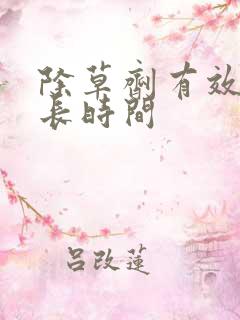 除草劑有效
長時間
吕改蓮